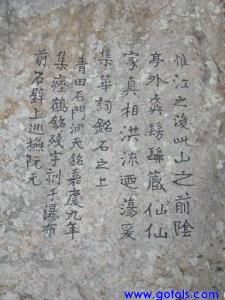 惟江之後此山之前陰
亭外爽髣髴藏仙仙
家真相洪流迺蕩爰
集華詞銘石之上
青田石門洞天銘嘉慶九年
集瘞鶴銘殘字刊于瀑布
前石壁上巡撫阮元
www.gotols.com